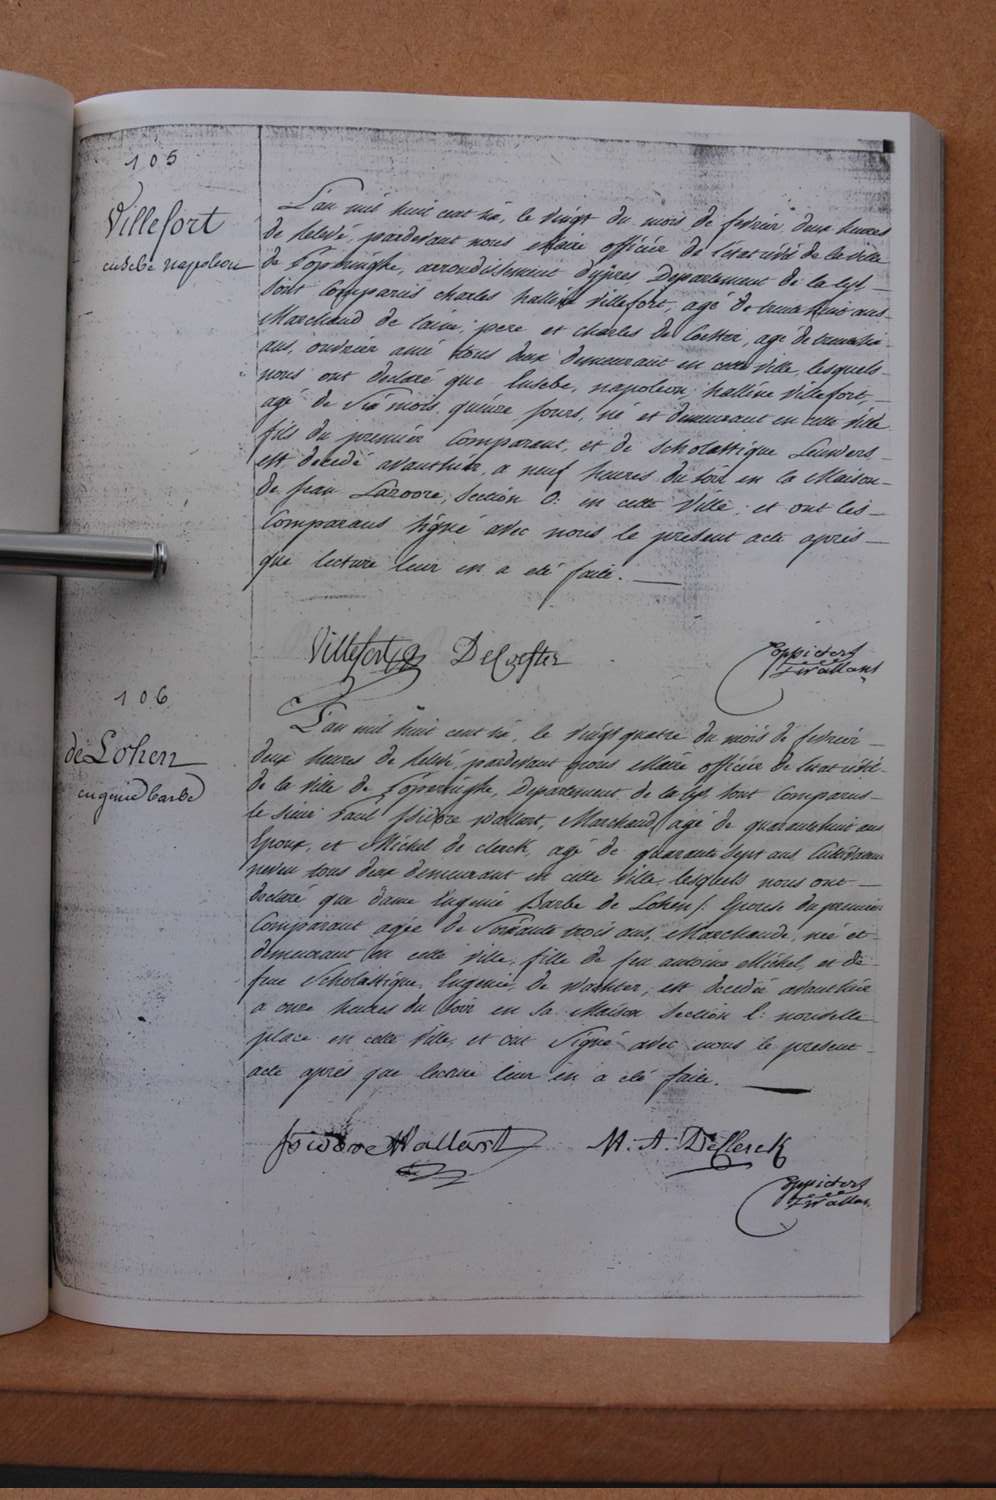 105
Villefort
eusebe napoleon
L'an mil huit cent six, le vingt du mois de fevrier deux heures
de relevé, pardevant nous Maire officier de l'etat civil de la ville
de Poperinghe, arrondissement d'ypres Departement de la Lys —
sont Comparus charles hallène Villefort, agé de ans
Marchand de laine, pere et charles De Coester, agé de
ans, ouvrier ami tous deux demeurant en cette ville, lesquels
nous ont declaré que Eusebe, napoleon hallène Villefort, —
agé de Six mois, quinze jours, né et demeurant en cette ville
fils du premier Comparant, et de Scholastique Leuwers
est decedé avanthier, a neuf heures du soir en la Maison
de jean , Section O: en cette Ville; et ont les
Comparans Signé avec nous le present acte après —
que lecture leur en a eté faite. —
Villefort DeCoester
106
de Lohen
eugenie barbe
L'an mil huit cent six, le vingt quatre du mois de fevrier —
deux heures de relevé, pardevant nous Maire officier de l'etat civil
de la Ville de Poperinghe, Departement de la Lys, sont Comparus
le Sieur Paul Isidore Wallart, Marchand, agé de quarante huit ans
Epoux, et Michel de clerck, agé de quarante Sept ans,
neveu tous deux demeurant en cette Ville, lesquels nous ont —
declaré que dame Eugenie Barbe de Lohen /: Epouse du premier
Comparant agée de Soixante trois ans, Marchande, née et
demeurant en cette ville, fille de feu antoine Michel, et de
feue Scholastique, Eugenie, de Wachter, est decedée avanthier
a onze heures du Soir en sa Maison Section l: nouvelle
place en cette Ville, et ont Signé avec nous le present
acte après que lecture leur en a eté faite. —
Isidore Wallart M. A. DeClerck